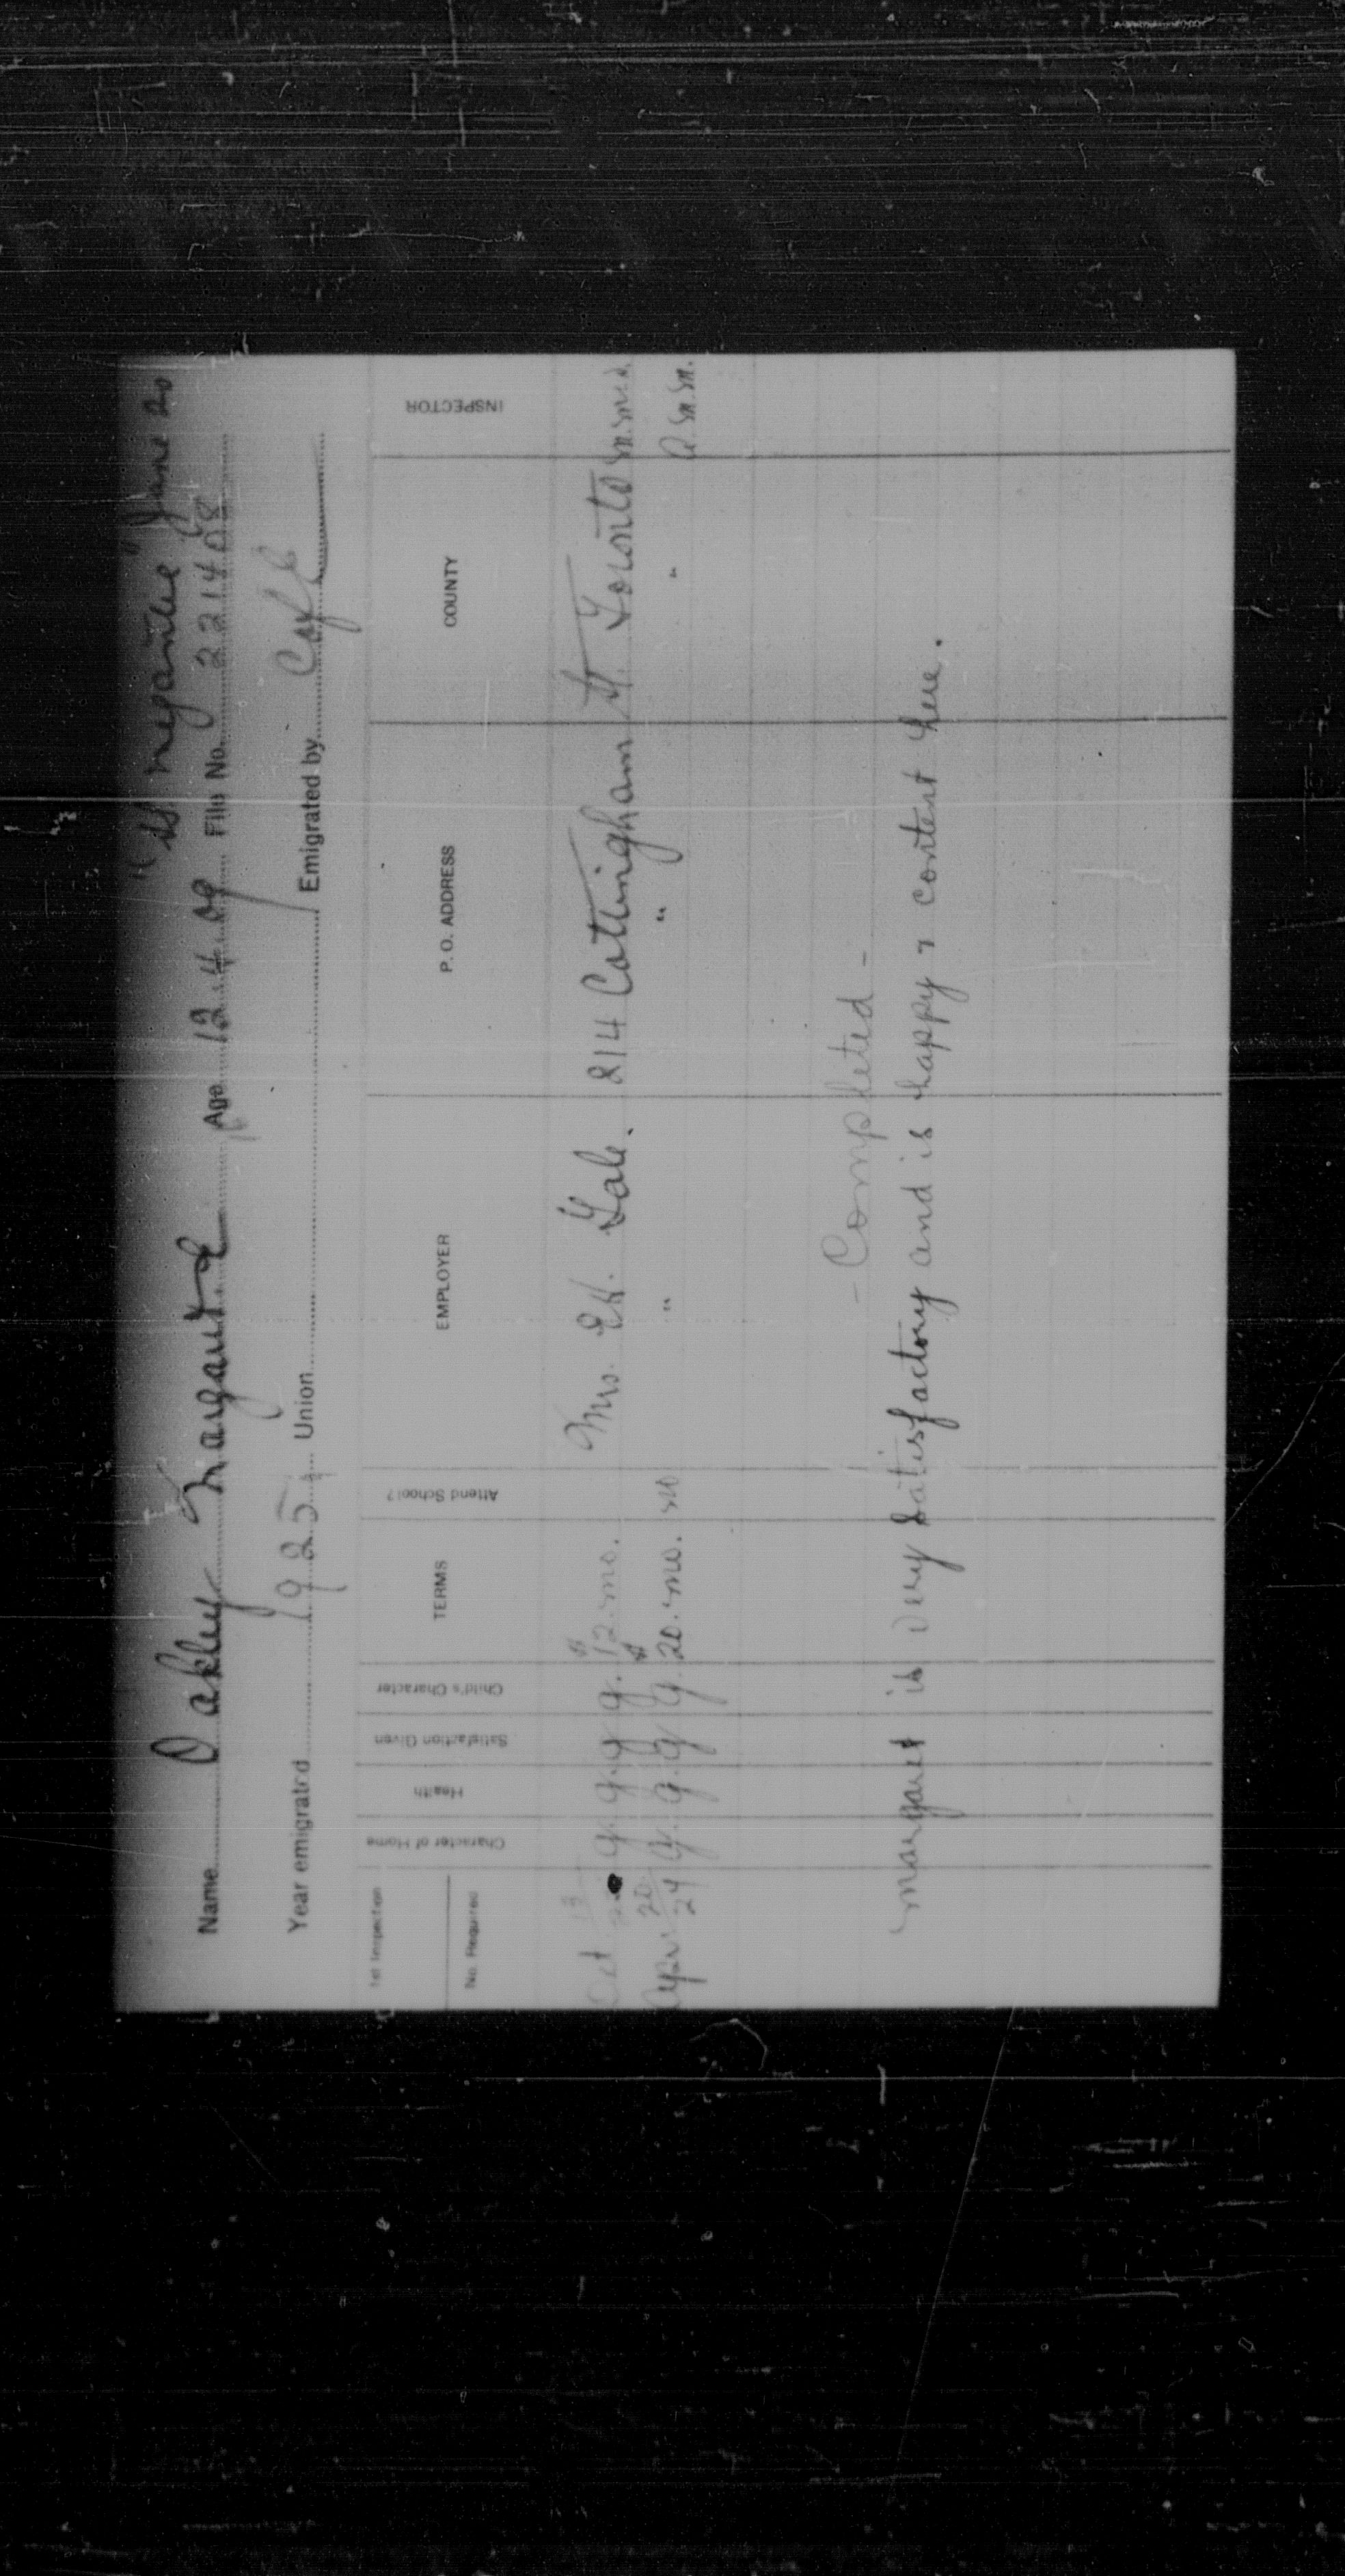 "SS Megantic" June 20
Name Oakley Margaret E Age 12.4.09 File No. 221408
Year emigrated 1925 Union Emigrated by
1st Inspection No. Required Character of Home Health Satisfaction Given Child's Character TERMS Attend School? EMPLOYER P. O. ADDRESS COUNTY INSPECTOR
Oct g. g. g. g. $12. mo. Mrs. Gale. 214 Cottingham St. Toronto
Apr. 20 24 g. g. g. g. $20. mo. no " " "
- Completed -
Margaret is very satisfactory and is happy & content here.